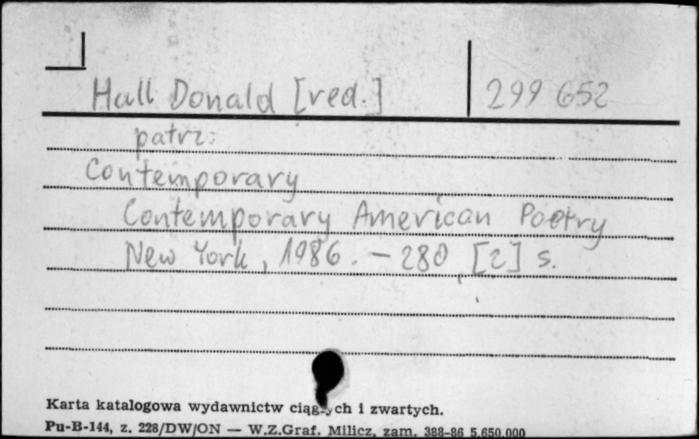 Hall Donald [red.] 299 652
patrz:
Contemporary
Contemporary American Poetry
New York, 1986. — 280, [2] s.
Karta katalogowa wydawnictw ciągłych i zwartych.
Pu-B-144, z. 228/DW/ON — W.Z.Graf. Milicz, zam. 388-86 5.650.000